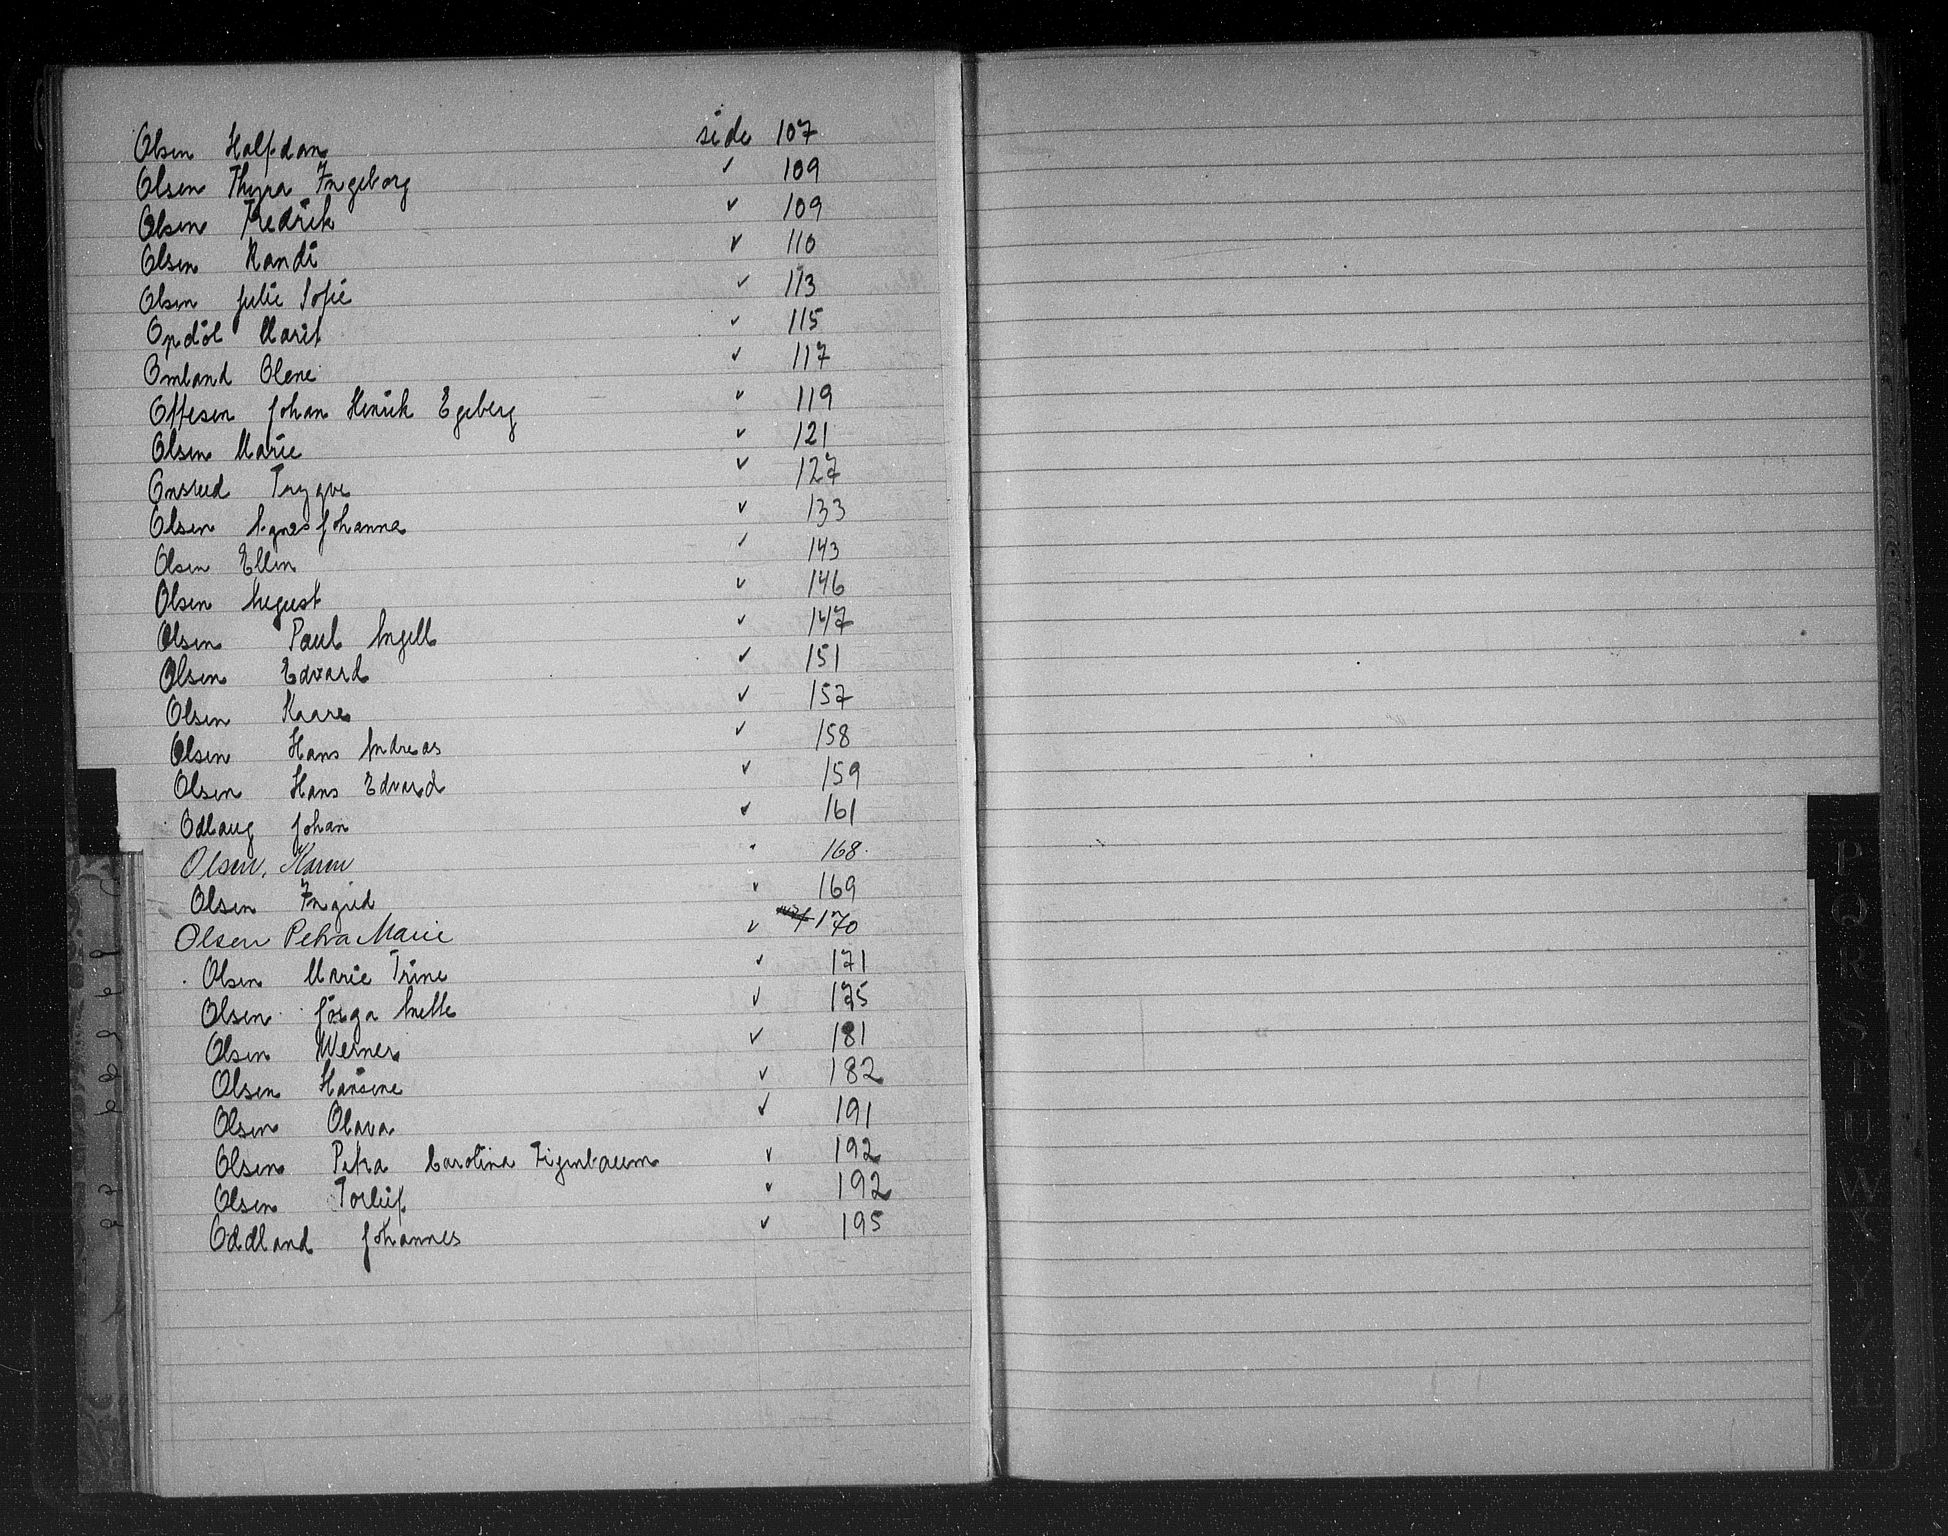 Olsen Halfdan side 107
Olsen Thyra Ingeborg ✓ 109
Olsen Fredrik ✓ 109
Olsen Randi ✓ 110
Olsen Julie Sofie ✓ 113
Opdöl Marit ✓ 115
Omland Olene ✓ 117
Offesen Johan Henrik Egeberg ✓ 119
Olsen Marie ✓ 121
Onsrud Trygve ✓ 127
Olsen Agnes Johanna ✓ 133
Olsen Ellen ✓ 143
Olsen August ✓ 146
Olsen Paul Angell ✓ 147
Olsen Edvard ✓ 151
Olsen Kaare ✓ 157
Olsen Hans Andreas ✓ 158
Olsen Hans Edvard ✓ 159
Odlaug Johan ✓ 161
Olsen, Karen 168.
Olsen Ingrid ✓ 169
Olsen Petra Marie ✓ 170
Olsen Marie Trine ✓ 171
Olsen Mette ✓ 175
Olsen Werner ✓ 181
Olsen Hansine ✓ 182
Olsen Olava ✓ 191
Olsen Petra Carolina ✓ 192
Olsen Torleif ✓ 192
Oddland Johannes ✓ 195
P
Q
R
S
T
U
W
X
Y